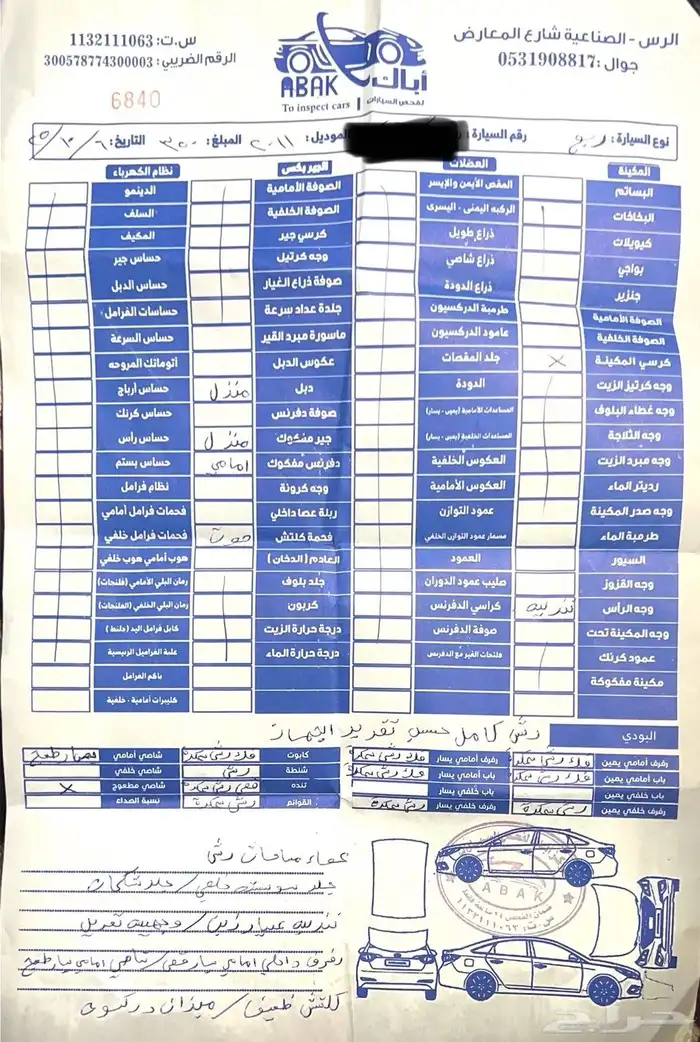 الرس - الصناعية شارع المعارض
جوال : 0531908817
أباك
لفحص السيارات
ABAK
To inspect cars
س.ت: 1132111063
الرقم الضريبي: 300578774300003
6840
نوع السيارة: ربع رقم السيارة: الموديل: ٢٠١١ المبلغ: ٣٥٠ التاريخ: ٢٥/١٠/٦
المكينة
البساتم
البخاخات
كويلات
بواجي
جنزير
الصوفة الأمامية
الصوفة الخلفية
كرسي المكينة X
وجه كرتيز الزيت
وجه غطاء البلوف
وجه الثلاجة
وجه مبرد الزيت
رديتر الماء
وجه صدر المكينة
طرمبة الماء
السيور
وجه القزوز
وجه الرأس تندييه
وجه المكينة تحت
عمود كرنك
مكينة مفكوكة
العضلات
المقص الأيمن والايسر
الركبه اليمنى - اليسرى
ذراع طويل
ذراع شاصي
ذراع الدودة
طرمبة الدركسيون
عامود الدركسيون
جلد المقصات
الدودة
المساعدات الأمامية (يمين - يسار)
المساعدات الخلفية (يمين - يسار)
العكوس الخلفية
العكوس الأمامية
عمود التوازن
مسمار عمود التوازن الخلفي
العمود
صليب عمود الدوران
كراسي الدفرنس
صوفة الدفرنس
فلنجات القير مع الدفرنس
الجهربكس
الصوفة الأمامية
الصوفة الخلفية
كرسي جير
وجه كرتيل
صوفة ذراع الغيار
جلدة عداد سرعة
ماسورة مبرد القير
عكوس الدبل
دبل منزل
صوفة دفرنس
جير مفكوك منزل
دفرنس مفكوك امامي
وجه كرونة
ربلة عصا داخلي
فحمة كلتش صوت
العادم (الدخان)
جلد بلوف
كربون
درجة حرارة الزيت
درجة حرارة الماء
نظام الكهرباء
الدينمو
السلف
المكيف
حساس جير
حساس الدبل
حساسات الفرامل
حساس السرعة
أتوماتك المروحه
حساس أرباج
حساس كرنك
حساس رأس
حساس بستم
نظام فرامل
فحمات فرامل أمامي
فحمات فرامل خلفي
هوب أمامي هوب خلفي
رمان البلي الأمامي (فلنجات)
رمان البلي الخلفي (الفلنجات)
كابل فرامل اليد (جلنط)
علبة الفراميل الرئيسية
باكم الفرامل
كليبرات أمامية - خلفية
البودي رش كامل حسب تقدير الجهاز
رفرف أمامي يمين فك رش سمكرة
باب أمامي يمين فك رش سمكرة
باب خلفي يمين
رفرف خلفي يمين رش سمكرة
رفرف أمامي يسار فك رش سمكرة
باب أمامي يسار فك رش سمكرة
باب خلفي يسار
رفرف خلفي يسار رش سمكرة
كابوت فك رش سمكرة
شنطة رش
تنده قص رش سمكرة
القوائم رش سمكرة
شاصي أمامي
شاصي خلفي
شاصي مطعوج X
نسبة الصداء
جلد سوسته خلفي / جلد شكمان
تندييه غيار زيت / وجهية تعريل
رفرف داخلي امامي يسار قص / شاصي امامي يسار طعج
كلتش ضعيف / ميزان دركسون
ABAK
حراج